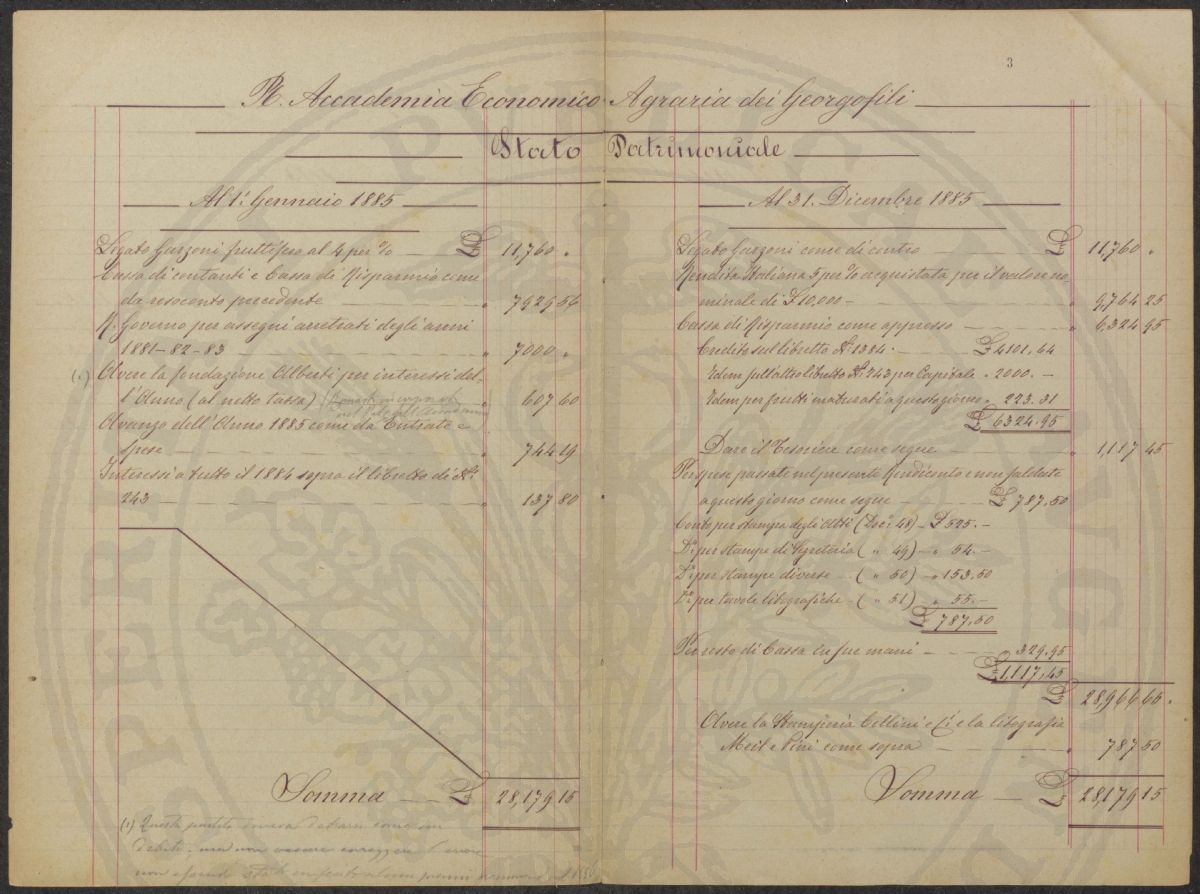 3
R. Accademia Economico-Agraria dei Georgofili
Stato Patrimoniale
Al 1º Gennaio 1885
Legato Garzoni fruttifero al 4 per % £ 11,760 "
Cassa di contanti e Cassa di Risparmio come
da resoconto precedente " 7929 56
R. Governo per assegni arretrati degli anni
1881-82-83 " 7000 "
(1) Avere la fondazione Alberti per interessi del-
l'Anno (al netto tassa) " 607 60
Avanzo dell'Anno 1885 come da Entrate e
spese " 744 19
Interessi a tutto il 1884 sopra il libretto di Nº
243 " 137 80
Somma £ 28,179 15
(1) Questa partita doveva detrarsi come un
debito; ma non
non
Al 31. Dicembre 1885
Legato Garzoni come di contro £ 11,760 "
Rendita Italiana 5 per % acquistata per il valore no-
minale di £ 10,000 - " 9,764 25
Cassa di Risparmio come appresso " 6324 95
Credito sul libretto Nº 1384 - £ 4101,64
Idem sull'altro libretto Nº 243 per Capitale " 2000.-
Idem per frutti maturati a questo giorno " 223.31
£ 6324.95
Dare il Tesoriere come segue " 1,117 45
Per spese passate nel presente Rendiconto e non saldate
a questo giorno come segue £ 787,50
Conto per stampa degli Atti (Doc. 48) - £ 525.-
Dº per stampe di Segreteria ( " 49) - " 54.-
Dº per stampe diverse - ( " 50) - " 153,50
Dº per tavole litografiche - ( " 51) " 55.-
£ 787,50
Per resto di Cassa in sue mani - " 329.95
£ 1,117,45
£ 28,966 65
Avere la Stamperia Cellini e Ci. e la litografia
Meil e Pini come sopra " 787 50
Somma £ 28,179 15